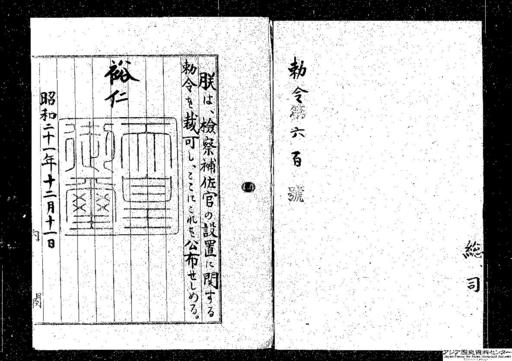 勅令第六百號
総、司
朕は檢察補佐官の設置に関する
勅令を裁可し、ここにこれを公布せしめる。
裕仁
天皇御璽
昭和二十一年十二月十一日
内閣
アジア歴史資料センター